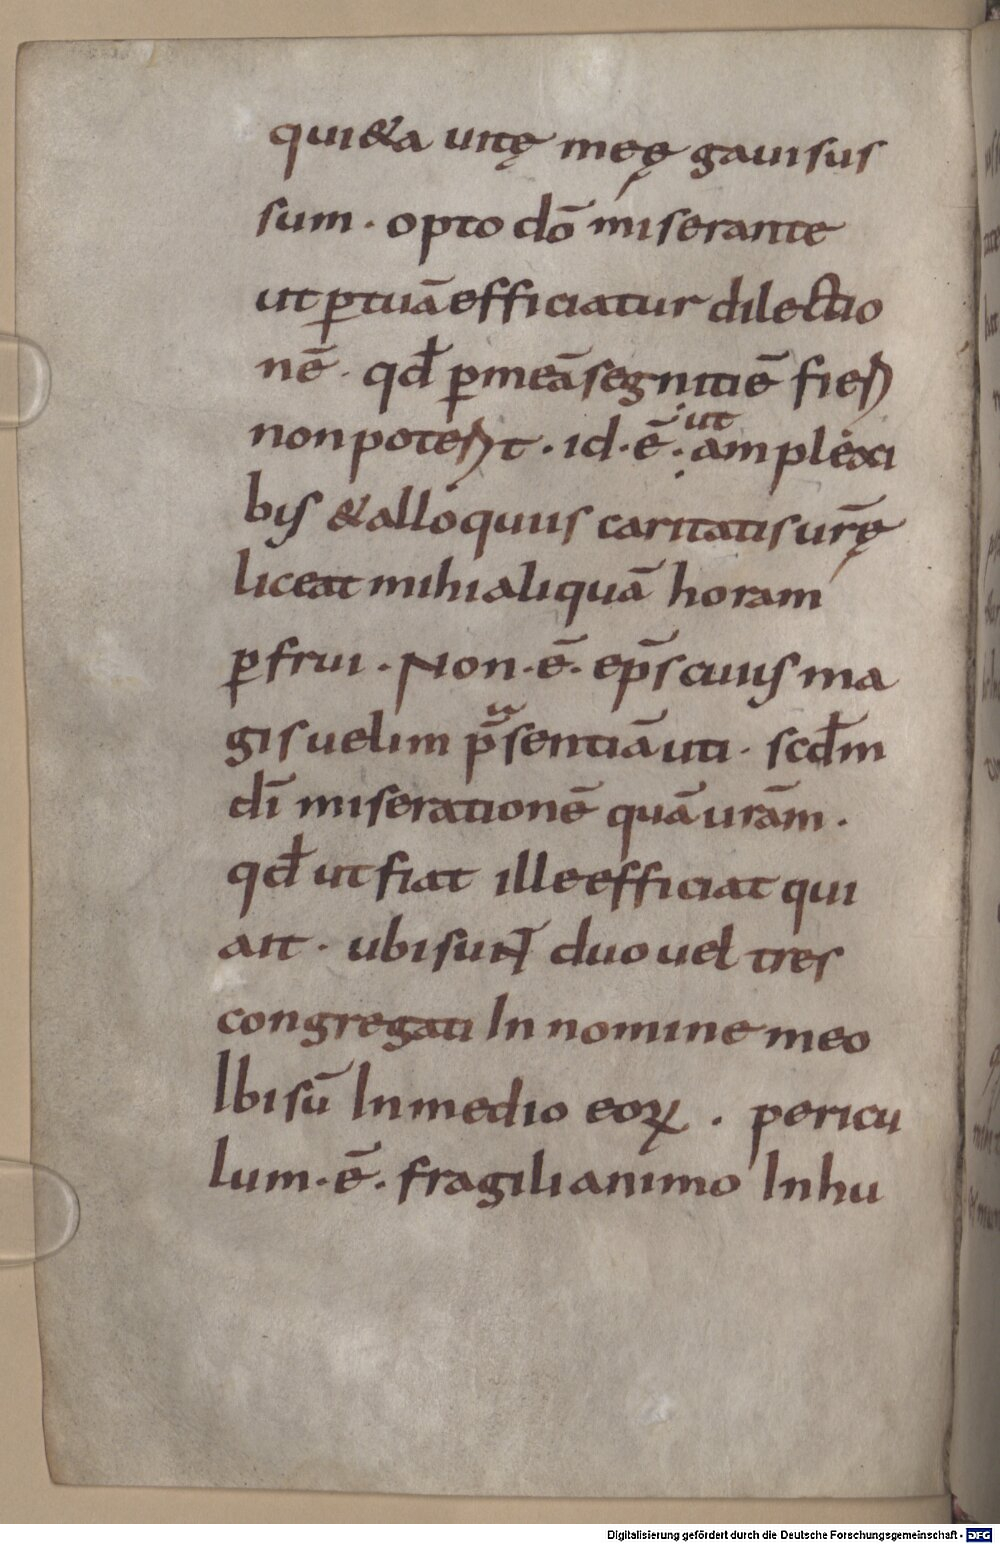 qui&a uitę meę gauisus
sum · opto dō miserante
ut ꝑtuā efficiatur dilectio
nē · qđ ꝑmeā segnitiē fieri
non poterit · id · ē · ut amplexi
bus &alloquiis caritatis urę̄
liceat mihi aliquā horam
ꝑfrui · Non · ē · ep̄s cuius ma
gis uelim p̄sentiā uti · scđm
dī miserationē quā urām ·
qđ ut fiat ille efficiat qui
ait · ubi sunt duo uel tres
congregati In nomine meo
Ibi sū In medio eoꝝ · pericu
lum · ē · fragili animo In hu
Digitalisierung gefördert durch die Deutsche Forschungsgemeinschaft - DFG